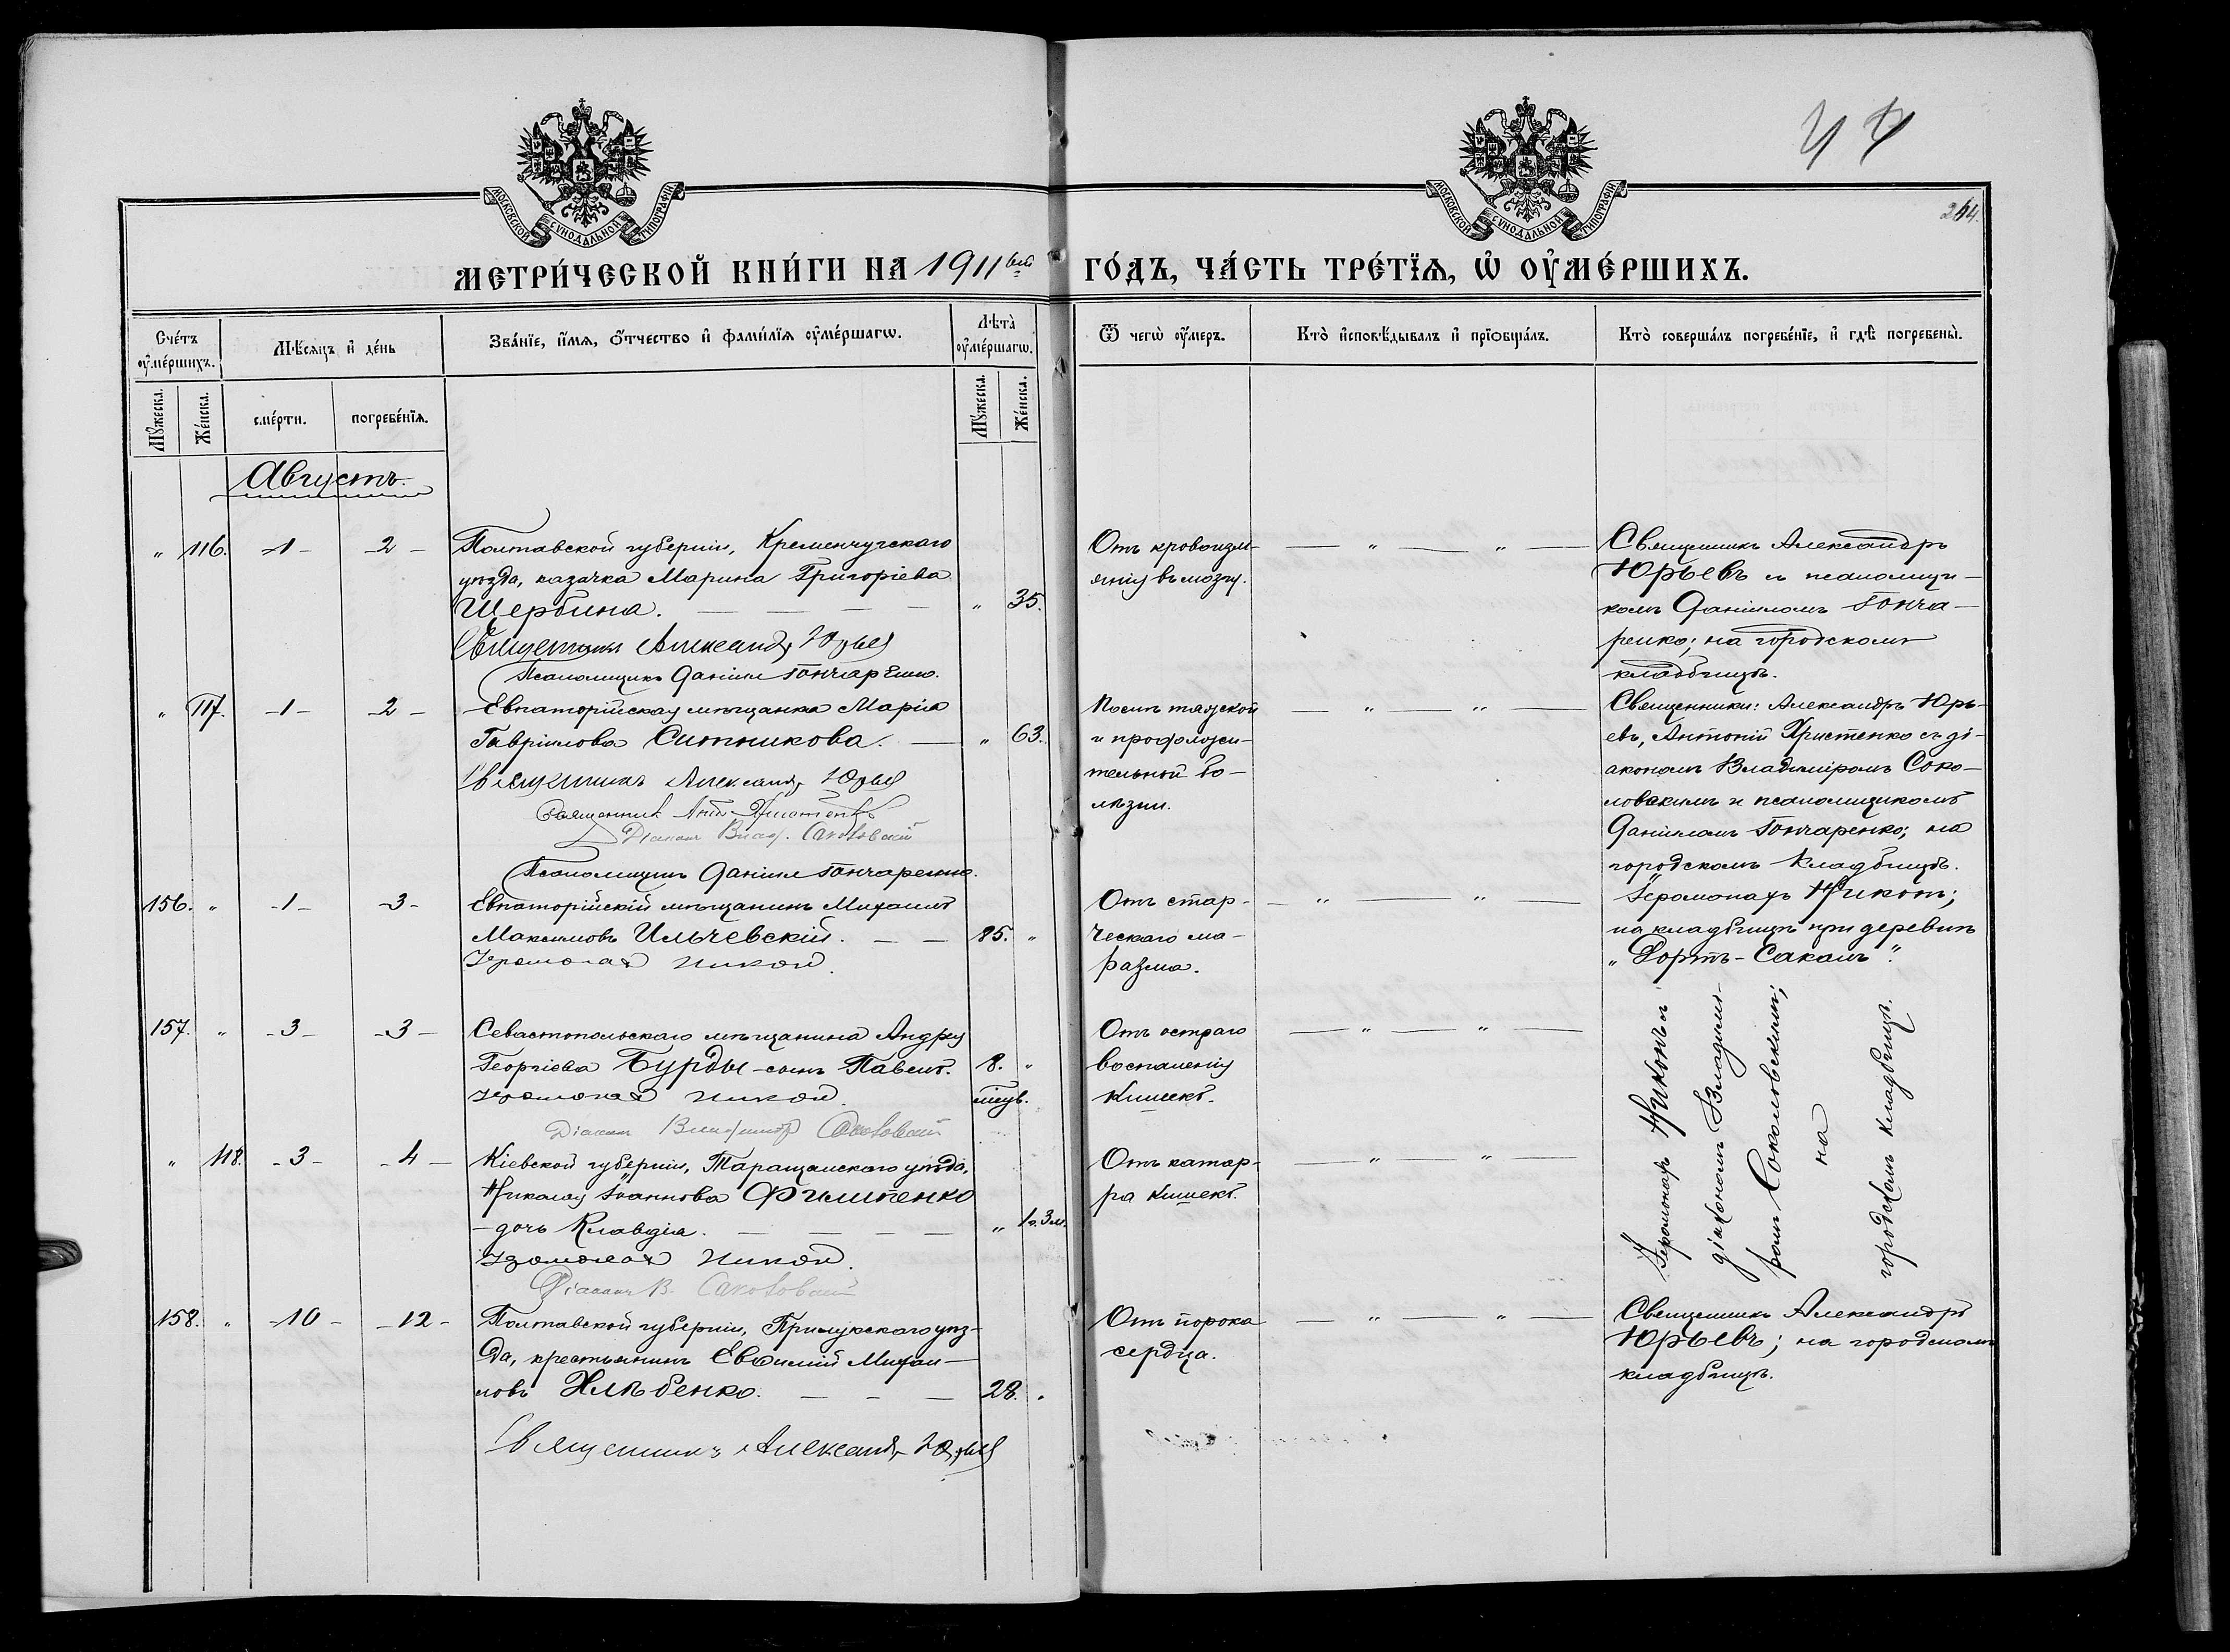 МОСКОВСКОЙ СѴНОДАЛЬНОЙ ТИПОГРАФІИ
МОСКОВСКОЙ СѴНОДАЛЬНОЙ ТИПОГРАФІИ
264.
МЕТРИ́ЧЕСКОЙ КНИ́ГИ НА 1911 ГО́ДЪ, ЧА́СТЬ ТРЕ́ТЇѦ, Ѡ҆ ОУ҆МЕ́РШИХЪ.
Счётъ оу҆ме́ршихъ.
Мꙋжеска.
Же́нска.
Мѣ́сѧцъ и҆ де́нь
сме́рти.
погребе́нїѧ.
Зва́нїе, и҆́мѧ, ѻ҆́тчество и҆ фами́лїѧ оу҆ме́ршагѡ.
Лѣта̀ оу҆ме́ршагѡ.
Мꙋжеска.
Же́нска.
Ѿ чегѡ̀ оу҆́меръ.
Кто̀ и҆сповѣ́дывалъ и҆ прїѡбща́лъ.
Кто̀ соверша́лъ погребе́нїе, и҆ гдѣ̀ погребены̀.
Августъ.
" 116. -1- -2-
Полтавской губерніи, Кременчугскаго
уѣзда, казачка Марина Григоріева
Щербина. — — — — " 35.
Священникъ Александр Юрьев
Псаломщикъ Даніилъ Гончаренко.
Отъ кровоизлі-
янія въ мозгу.
— " — " —
Священникъ Александръ
Юрьевъ съ псаломщи-
комъ Даніиломъ Гонча-
ренко; на городскомъ
кладбищѣ.
" 117. -1- -2-
Евпаторійская мѣщанка Марія
Гавріилова Ситникова. — " 63.
Священникъ Александр Юрьев
Священникъ Ант. Христенко
Діаконъ Влад. Соколовскій
Псаломщикъ Даніилъ Гончаренко.
Послѣ тяжской
и продолжи-
тельной бо-
лѣзни.
— " — " —
Священники: Александръ Юрь-
евъ, Антоній Христенко съ ді-
акономъ Владиміромъ Соко-
ловскимъ и псаломщикомъ
Даніиломъ Гончаренко; на
городскомъ кладбищѣ.
156. " -1- -3-
Евпаторійскій мѣщанинъ Михаилъ
Максимовъ Ильчевскій. — — 85. "
Іеромонах Никон.
Отъ стар-
ческаго ма-
разма.
— " — " —
Іеромонахъ Никонъ;
на кладбищѣ при деревнѣ
„Дортъ-Сакалъ".
157. " -3- -3-
Севастопольскаго мѣщанина Андрея
Георгіева Бурды - сынъ Павелъ. 8. "
мѣс.
Іеромонах Никон.
Діаконъ Владимір Соколовскій
Отъ остраго
воспаленія
кишекъ.
— " — " —
" 118. -3- -4-
Кіевской губерніи, Таращанскаго уѣзда,
Николая Іоаннова Филипенко
- дочь Клавдія. — — — — " 1 г. 3 м.
Іеромонах Никон.
Діаконъ В. Соколовскій
Отъ катар-
ра кишекъ.
— " — " —
Іеромонахъ Никонъ и
діаконъ Владимі-
ромъ Соколовскимъ;
на
городскомъ кладбищѣ.
158. " -10- -12-
Полтавской губерніи, Прилукскаго уѣз-
да, крестьянинъ Евѳимій Михаи-
ловъ Хлѣбенко. — — — 28. "
Священникъ Александр Юрьев
Отъ порока
сердца.
— " — " —
Священникъ Александръ
Юрьевъ; на городскомъ
кладбищѣ.